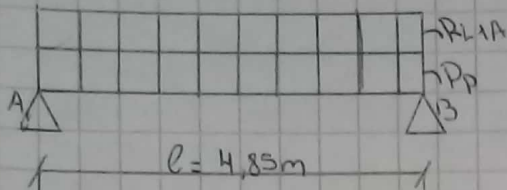 RL1A
Pp
A B
l = 4,85m